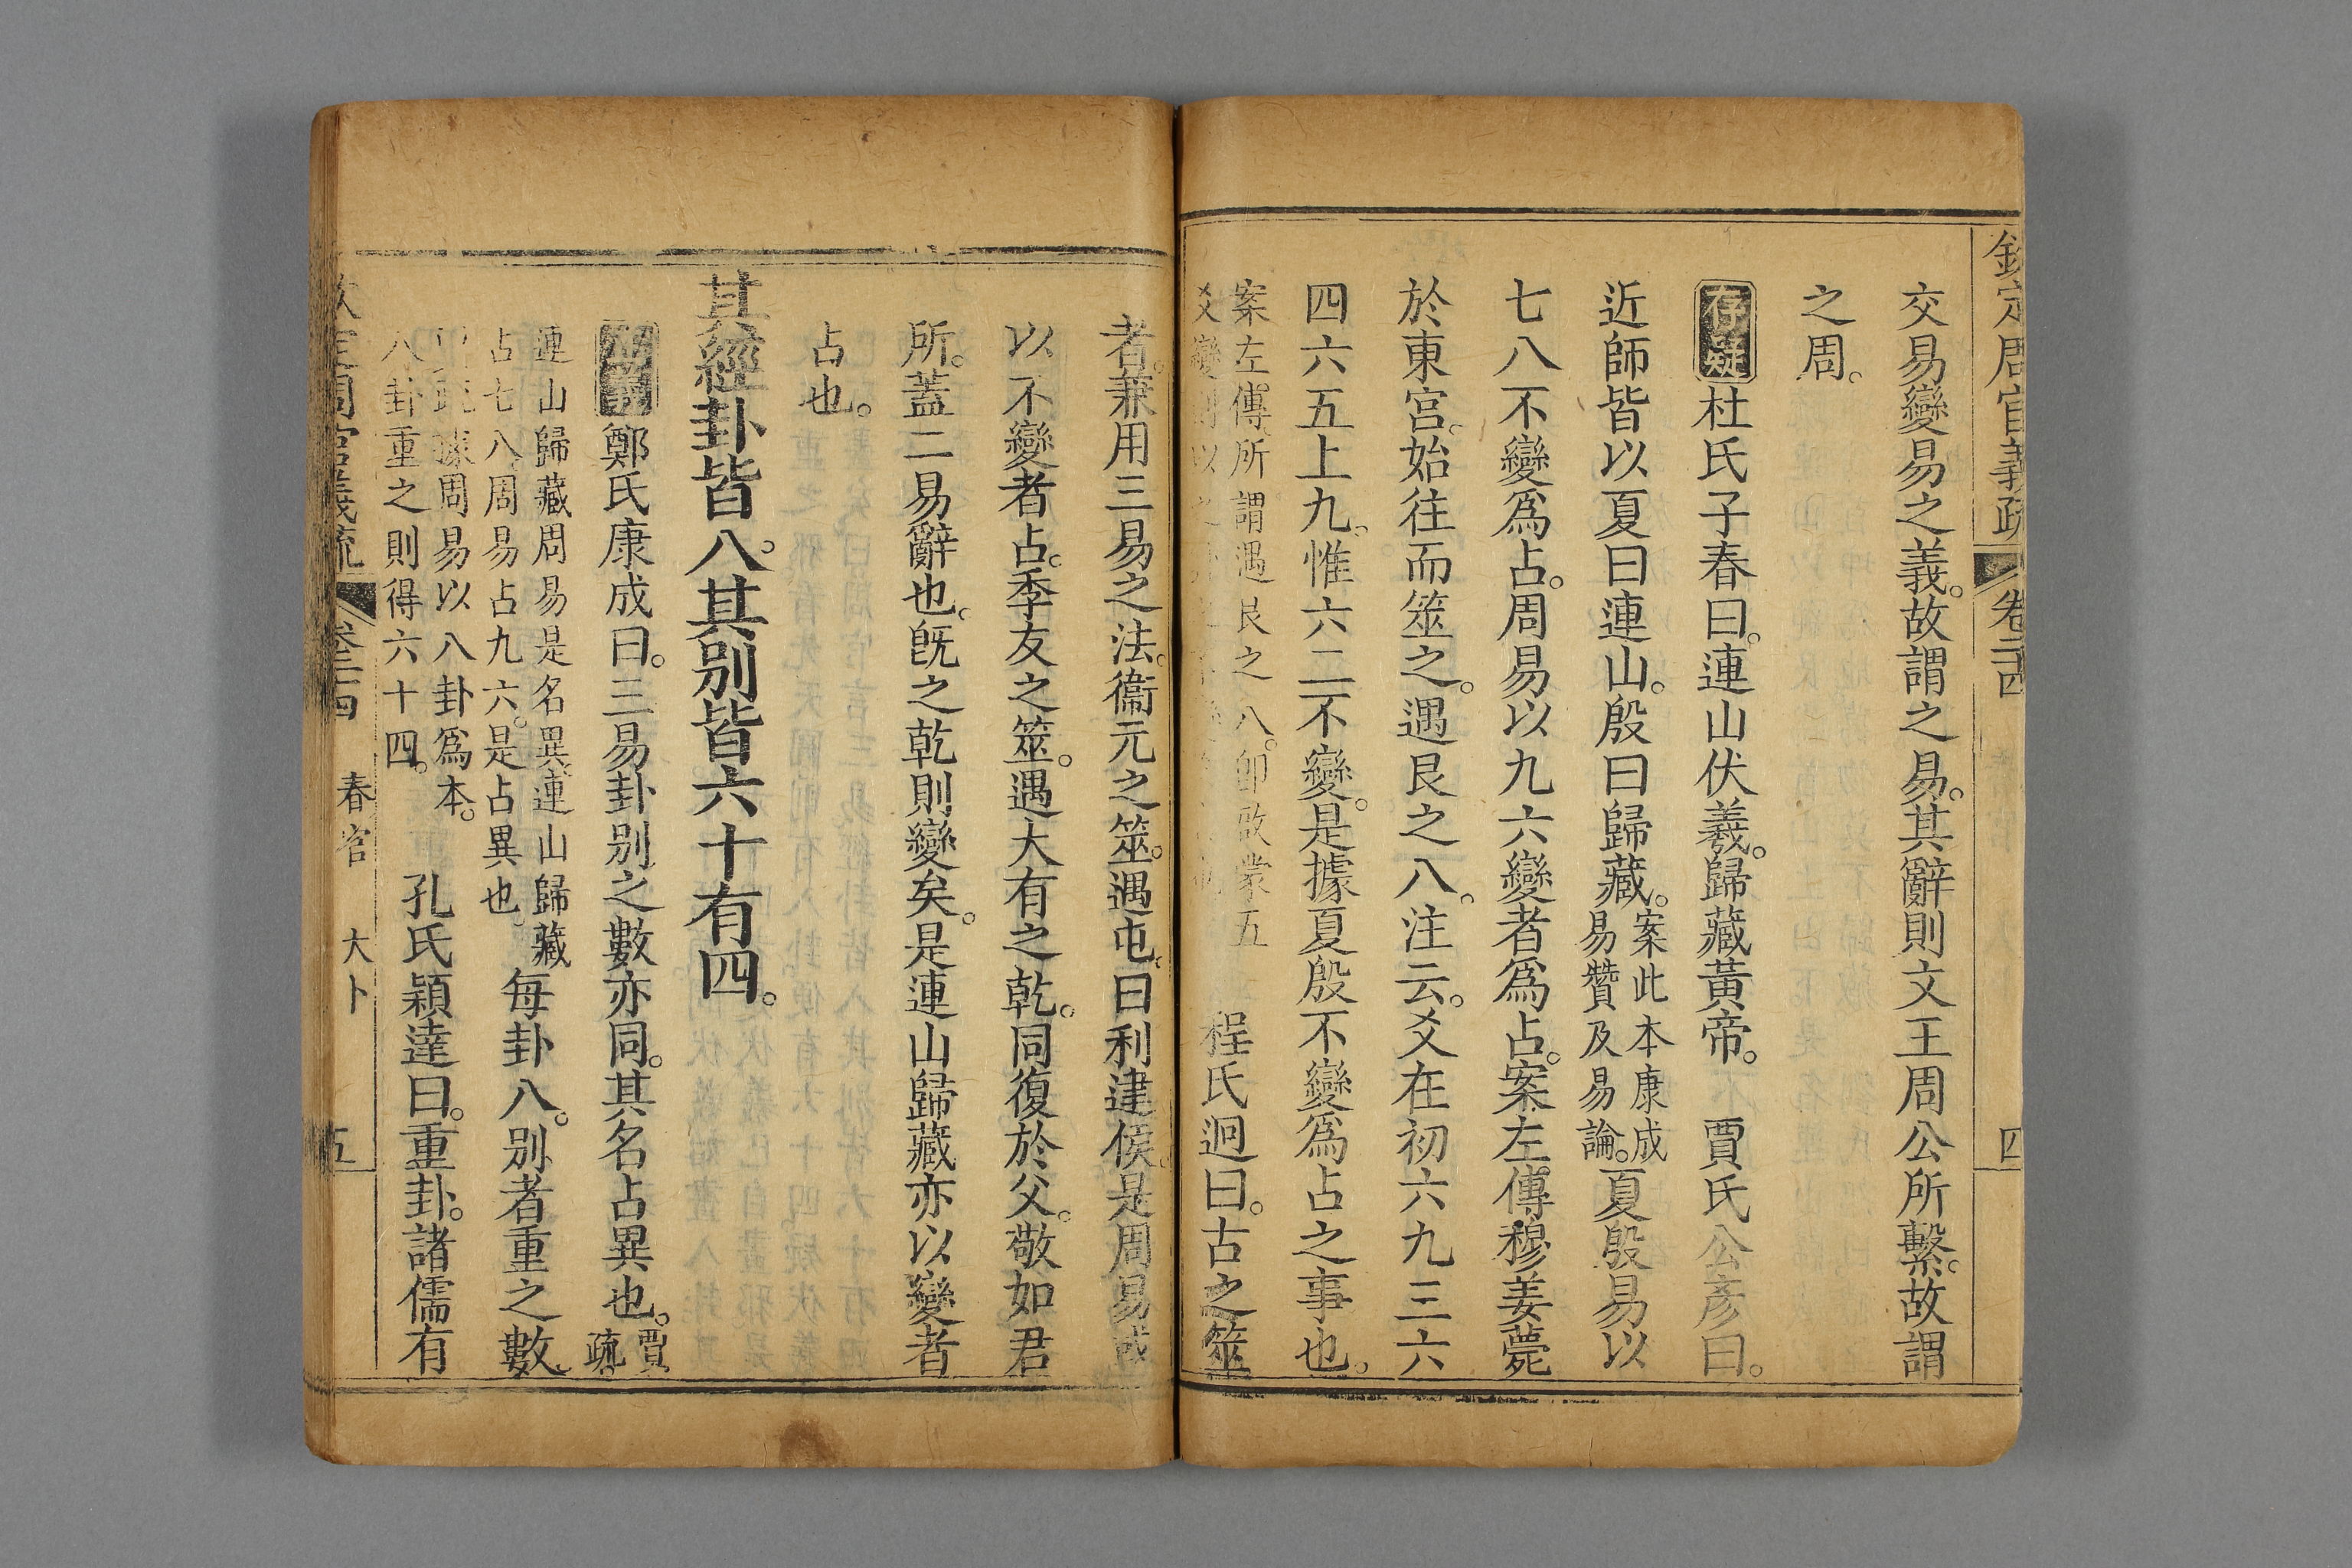 欽定周官義疏 卷二十四 四
交易變易之義。故謂之易。其辭則文王周公所繫。故謂
之周。
存疑 杜氏子春曰。連山伏羲。歸藏黃帝。 賈氏公彥曰。
近師皆以夏曰連山。殷曰歸藏。案此本康成易贊及易論。夏殷易以
七八不變爲占。周易以九六變者爲占。案左傳穆姜薨
於東宮。始往而筮之。遇艮之八。注云。爻在初六九三六
四六五上九。惟六二不變。是據夏殷不變爲占之事也。
案左傳。所謂遇艮之八。卽啟蒙五
爻變則以之
程氏迥曰。古之筮
者。兼用三易之法。衞元之筮。遇屯。曰利建侯。是周易或
以不變者占。季友之筮。遇大有之乾。同復於父。敬如君
所。蓋二易辭也。旣之乾則變矣。是連山歸藏亦以變者
占也。
其經卦皆八。其別皆六十有四。
鄭氏康成曰。三易卦別之數亦同。其名占異也。賈疏。
連山歸藏周易是名異。連山歸藏
占七八。周易占九六。是占異也。
每卦八。別者重之數。
據周易以八卦爲本。
八卦重之則得六十四。
孔氏穎達曰。重卦。諸儒有
定周官義疏 卷二十四 春官 大卜 五